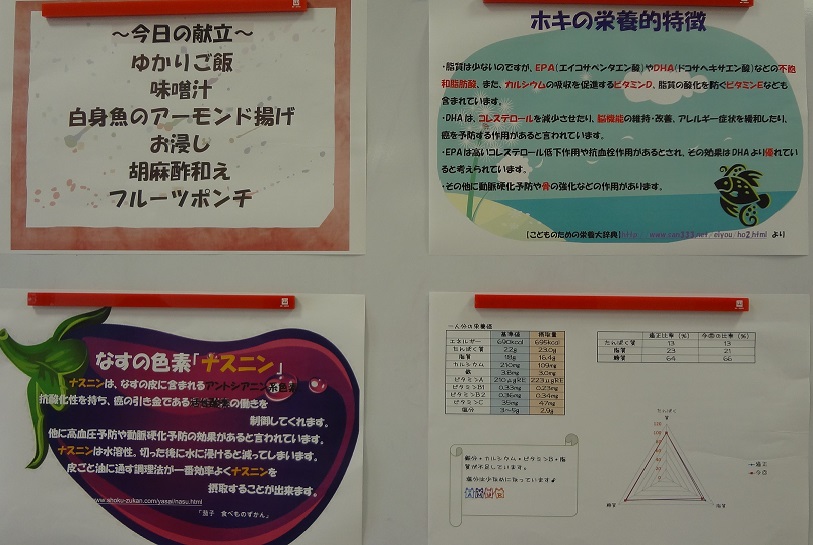 ～今日の献立～
ゆかりご飯
味噌汁
白身魚のアーモンド揚げ
お浸し
胡麻酢和え
フルーツポンチ
ホキの栄養的特徴
・脂質は少ないのですが、EPA(エイコサペンタエン酸)やDHA(ドコサヘキサエン酸)などの不飽
和脂肪酸、また、カルシウムの吸収を促進するビタミンD、脂質の酸化を防ぐビタミンEなども
含まれています。
・DHAは、コレステロールを減少させたり、脳機能の維持・改善、アレルギー症状を緩和したり、
癌を予防する作用があると言われています。
・EPAは高いコレステロール低下作用や抗血栓作用があるとされ、その効果はDHAより優れてい
ると考えられています。
・その他に動脈硬化予防や骨の強化などの作用があります。
【こどものための栄養大辞典】 より
なすの色素「ナスニン」
ナスニンは、なすの皮に含まれるアントシアニン系色素。
抗酸化性を持ち、癌の引き金である活性酸素の働きを
制御してくれます。
他に高血圧予防や動脈硬化予防の効果があると言われています。
ナスニンは水溶性。切った後に水に浸けると減ってしまいます。
皮ごと油に通す調理法が一番効率よくナスニンを
摂取することが出来ます。
www.shoku-zukan.com/yasai/nasu.html
「茄子 食べものずかん」
一人分の栄養価
基準値 摂取量
エネルギー 690kcal 695kcal
たんぱく質 22g 23.0g
脂質 18g 16.4g
カルシウム 210mg 109mg
鉄 3.8mg 3.0mg
ビタミンA 210μgRE 223μgRE
ビタミンB1 0.33mg 0.23mg
ビタミンB2 0.36mg 0.34mg
ビタミンC 35mg 47mg
塩分 3～5g 2.9g
適正比率(%) 今回の比率(%)
たんぱく質 13 13
脂質 23 21
糖質 64 66
鉄分・カルシウム・ビタミンB・脂
質が不足しています。
塩分は少なめになっています♪
たんぱく
質
120
100
80
60
40
20
0
糖質
脂質
適正
今回